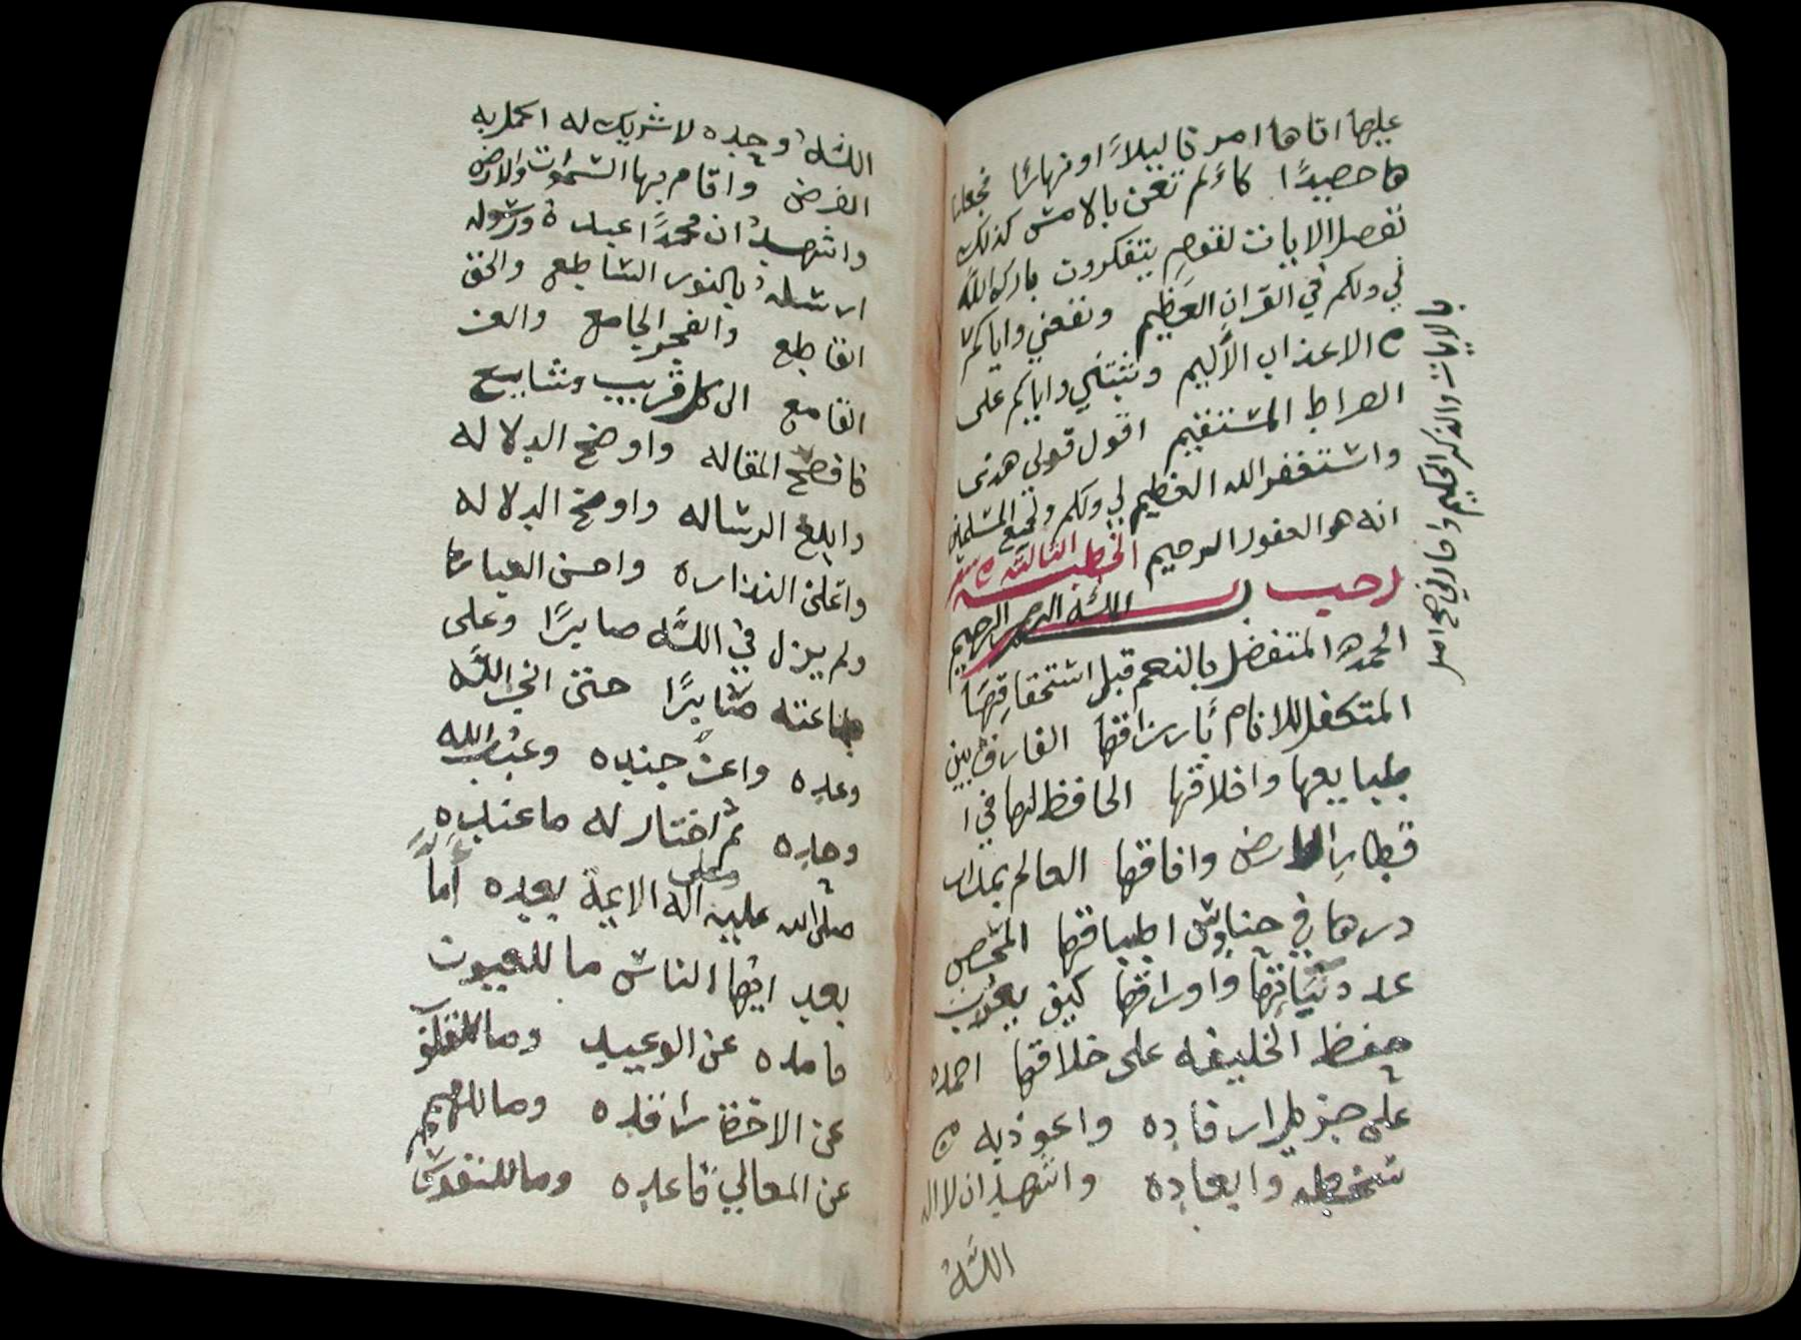 عليها اتاها امرنا ليلاً او نهارًا فجعلنا
ها حصيدًا كاءلم تغن بالامس كذلك
نفصل الايات لقومٍ يتفكرون بارك الله
لي ولكم في القران العظيم ونفعني واياكم
الاعذاب الأليم وثبتني واياكم على
الصراط المستقيم اقول قولي هذى
واستغفر الله العظيم لي ولكم ولجميع المسلمين
انه هو الغفور الرحيم الخطبه الثالثه
رجب بسم الله الرحمن الرحيم
الحمدلله المتفضل بالنعم قبل استحقاقها
المتكفل للانام بأرزاقها الفارق بين
طبايعها واخلاقها الحافظ لها في ا
قطار الارض وافاقها العالم بمدب
درها في حنادس اطباقها المحصي
عدد واوراقها كيف يعزب
حفظ الخليقه على خلاقها احمده
على جزيل ارفاده واعوذ به
سخطه وابعاده واشهد ان لا اله
الله
بالايات والذكر الحكيم
الله وحده لا شريك له اكمل به
الفرض واقام بها السموات والارض
واشهد ان محمدًا عبده ورسوله
ارسله بالنور الساطع والحق
القاطع والفجر الجامع والعز
القامع الى كل قريب وشاسع
فافصح المقاله واوضح الدلاله
وابلغ الرساله واوضح الدلاله
واعلن النذاره واحسن العباره
ولم يزل في الله صابرًا وعلى
طاعته مثابرًا حتى انجز الله
وعده واعز جنده وعبد الله
وحده ثم اختار له ما عنده
صلى الله عليه وعلى آله الايمة بعده أما
بعد ايها الناس ما للعيون
هامده عن الوعيد وما للقلوب
عن الاخره راقده وما للهمم
عن المعالي قاعده وما للنفوس